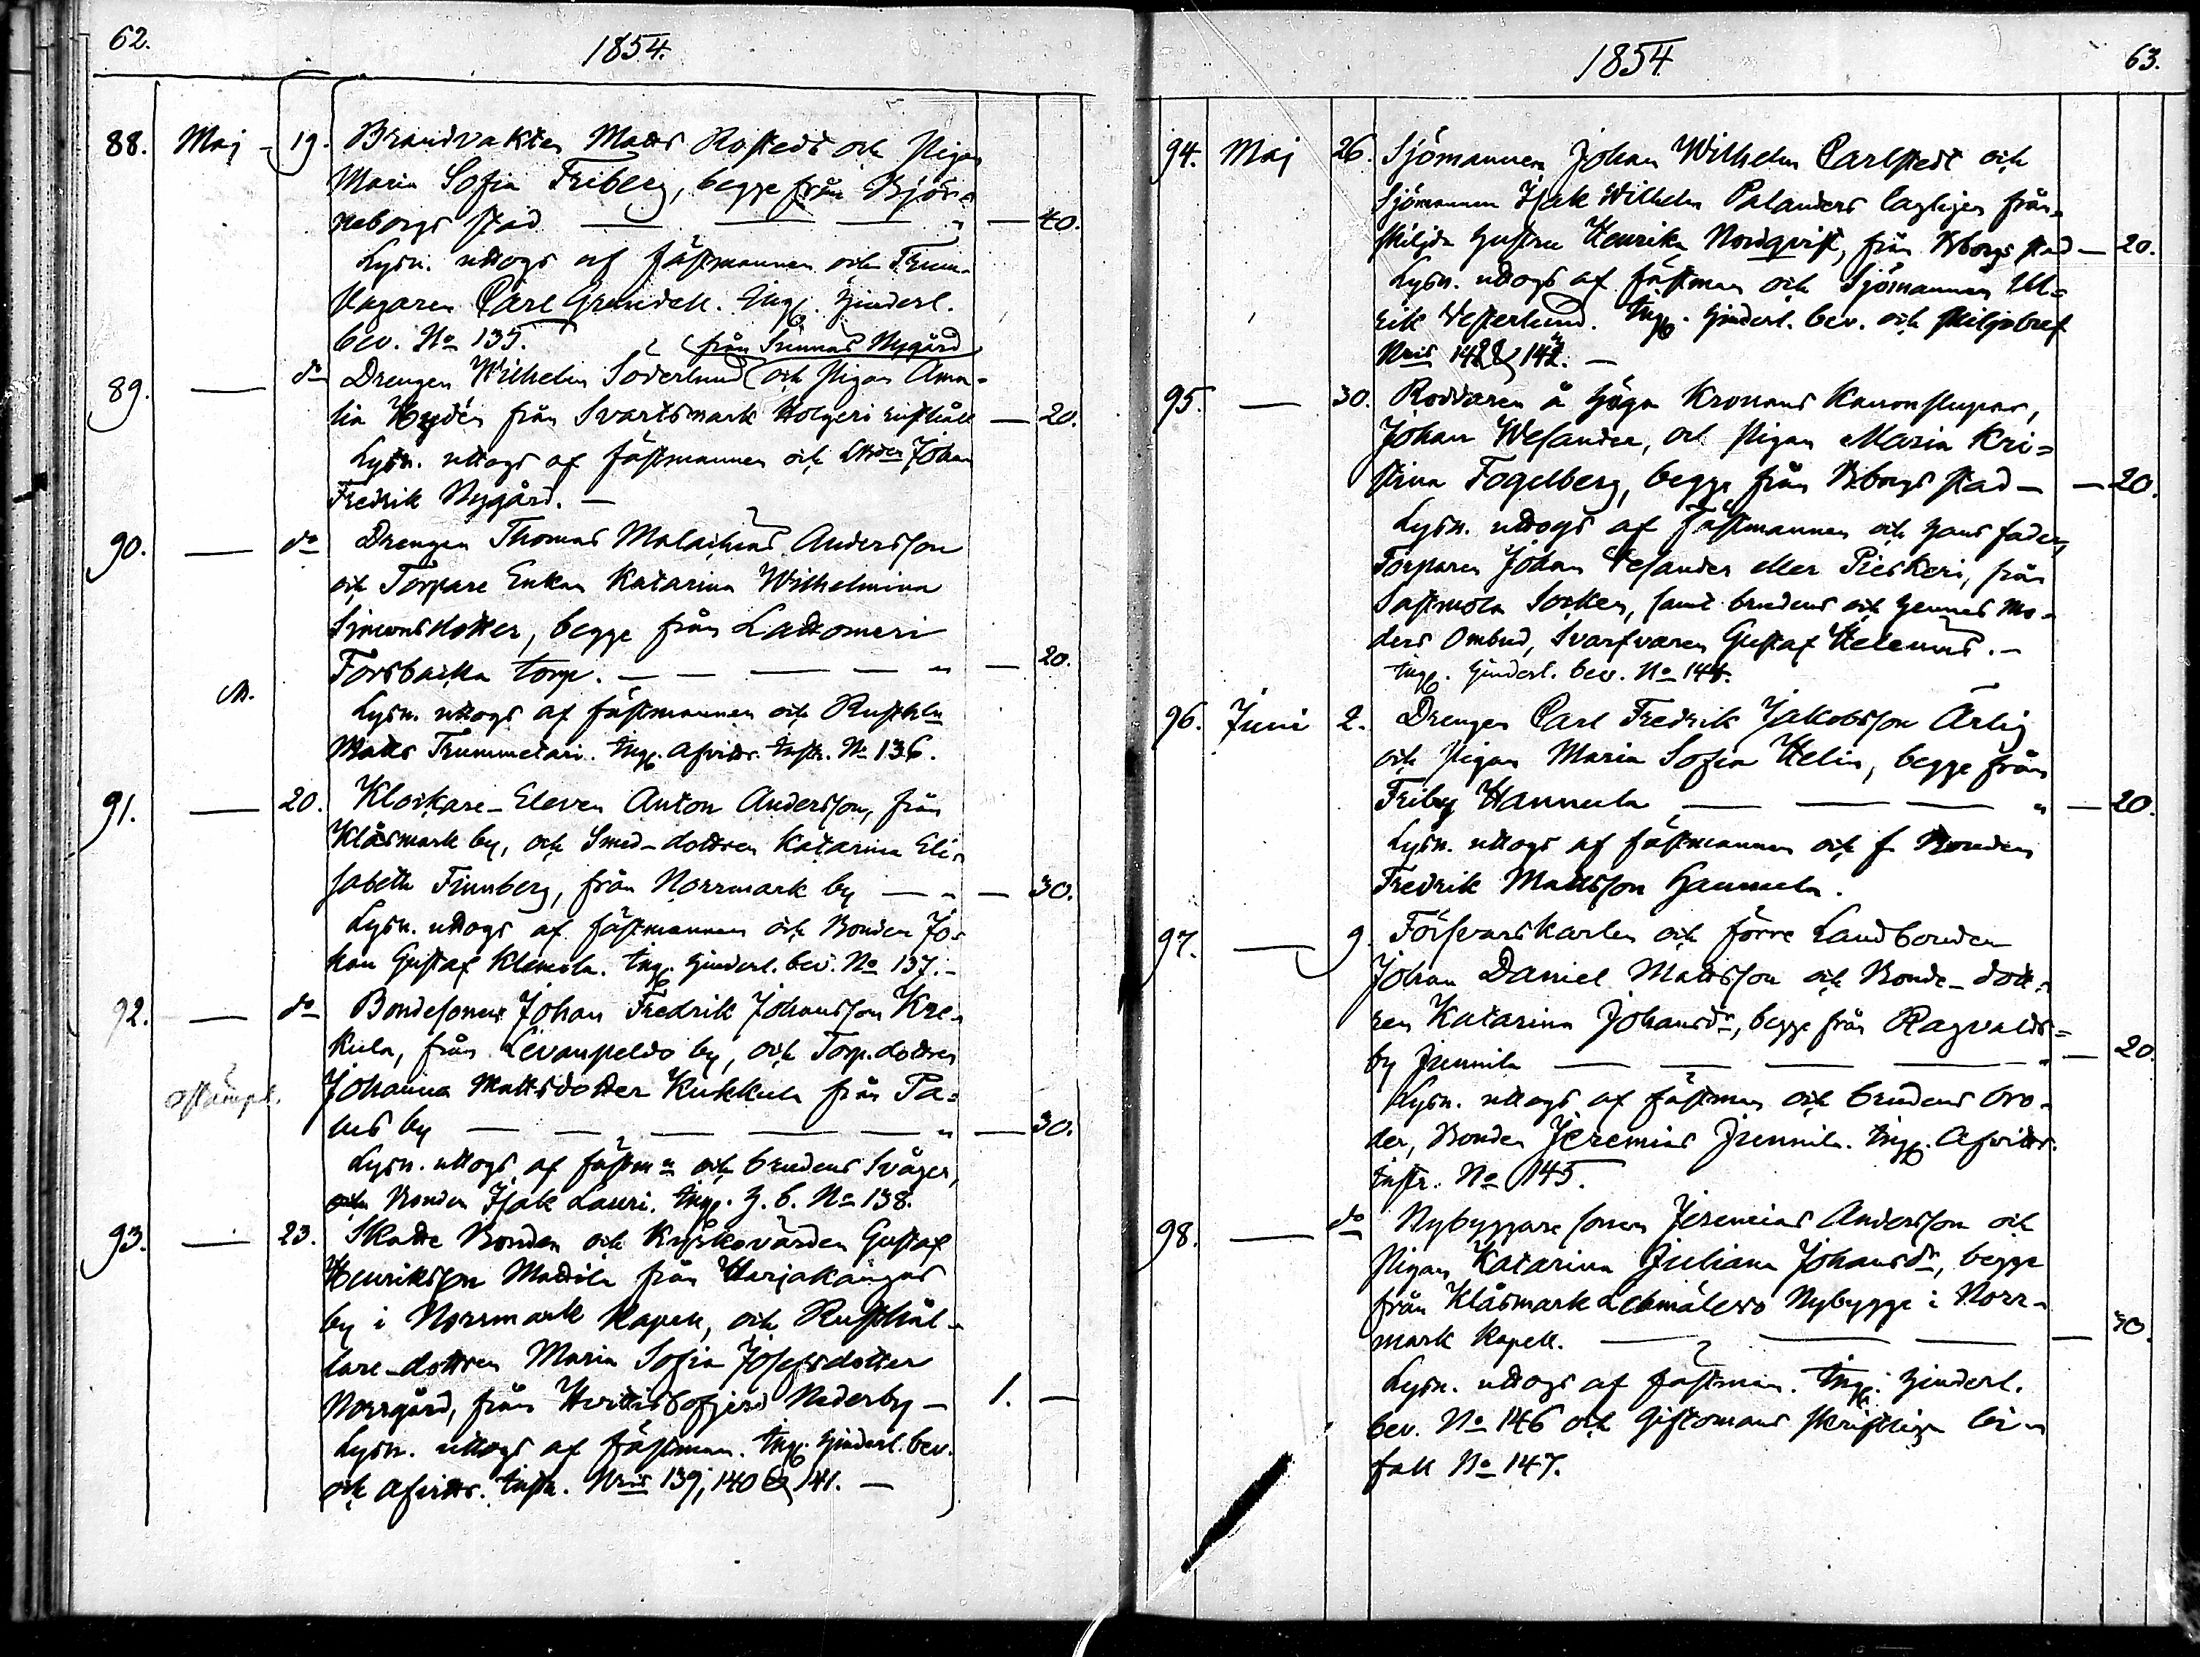 62.
1854.
88. Maj - 19. Brandvakten Matts Rostedt och Pigan
Maria Sofia Friberg, begge från Björ-
neborgs stad — — — " — 40.
Lysn. uttogs af fästmannen och Trum-
slagaren Carl Grundell. Ingf. Hinderl.
bev. No 135.
från Sunnas Nygård
89. — do Drengen Wilhelm Söderlund och Pigan Ama-
lia Hydén från Svartsmark Holgeri rusthåll — 20.
Lysn. uttogs af fästmannen och Johan
Fredrik Nygård. —
90. — do Drengen Thomas Malachias Andersson
och Torpare Enkan Katarina Wilhelmina
Simonsdotter, begge från Lattomeri
Forsbacka torp. — — — — " — 20.
Lysn. uttogs af fästmannen och Rusth
Matts Trummetari. Ingf. Afvittr. Instr. No 136.
91. — 20. Klockare-Eleven Anton Andersson, från
Klåsmark by, och Smed-dottren Katarina Eli-
sabeth Finnberg, från Norrmark by — " — 30.
Lysn. uttogs af fästmannen och Bonden Jo-
han Gustaf Klemola. Ingf. Hinderl. bev. No 137. -
92. — do Bondesonen Johan Fredrik Johansson Kre-
kula, från Levanpelto by, och Torp.dottren
Johanna Mattsdotter Kukkula från Pa-
lus by — — — — — " — 30.
Lysn. uttogs af fästmn och brudens Svåger,
Bonden Isak Lauri. Ingf. H. b. No 138.
93. — 23. Skatte Bonden och Kyrkovärden Gustaf
Henriksson Mattila från Harjakangas
by i Norrmark Kapell, och Rusthål-
lare-dottren Maria Sofia Josefsdotter
Norrgård, från Hvittisbofjerd Nederby — 1. —
Lysn. uttogs af fästman. Ingf. Hinderl. bev.
och Afvittr. Instr. Nris 139, 140 & 141. —
63.
1854
94. Maj 26. Sjömannen Johan Wilhelm Carlstedt och
Sjömannen Isak Wilhelm Palanders lagligen från-
skiljda hustru Henrika Nordqvist, från Bborgs stad — 20.
Lysn. uttogs af fästman och Sjömannen Ul-
rik Vesterlund. Ingf. Hinderl. bev. och skiljobref
Nris 142 & 143. —
95. — 30. Roddaren å Höga Kronans Kanonslupar,
Johan Wesander, och Pigan Maria Kri-
stina Fogelberg, begge från Bborgs stad — — 20.
Lysn. uttogs af fästmannen och hans fader,
Torparen Johan Vesander eller Pieskeri, från
Sastmola Socken, samt brudens och hennes Mo-
ders Ombud, Svarfvaren Gustaf Helenius. —
Ingf. Hinderl. bev. No 144.
96. Juni 2. Drengen Carl Fredrik Jakobsson Ärlig
och Pigan Maria Sofia Helin, begge från
Friby Hannula — — — " — 20.
Lysn. uttogs af fästmannen och f. Bonden
Fredrik Mattsson Hannula.
97. — 9. Försvarskarlen och förre Landbonden
Johan Daniel Mattsson och Bonde-dott-
ren Katarina Johansdr, begge från Ragvalds-
by Junnila — — — — " — 20.
Lysn. uttogs af fästman och brudens bro-
der, Bonden Jeremias Junnila. Ingf. Afvittr.
instr. No 145.
98. — do Nybyggare sonen Jeremias Andersson och
Pigan Katarina Juliana Johansdr, begge
från Klåsmark Nybygge i Norr-
mark Kapell. — — — — 30.
Lysn. uttogs af fästman. Ingf. Hinderl.
bev. No 146 och Giftomans skriftliga bi-
fall No 147.